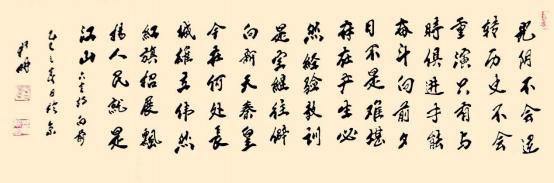 光阴不会逆
转历史不会
重演只有与
时俱进才能
奋斗向前夕
日不是难堪
存在乎生必
然经验教训
是宝继往辟
向新天秦皇
今在何处长
城雄立伟然
红旗招展飘
扬人民就是
江山 六言诗向前
乙巳之春日於京